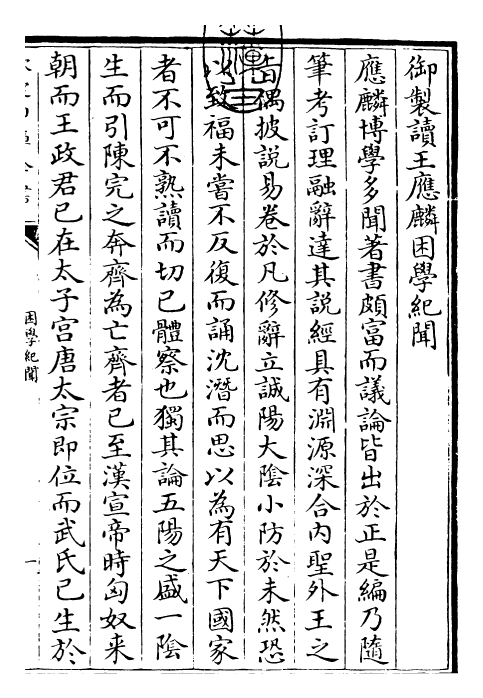 御製讀王應麟困學紀聞
應麟博學多聞著書頗富而議論皆出於正是編乃隨
筆考訂理融辭達其說經具有淵源深合内聖外王之
旨偶披說易卷於凡修辭立誠陽大陰小防於未然恐
以致福未嘗不反復而誦沈潛而思以為有天下國家
者不可不熟讀而切已體察也獨其論五陽之盛一陰
生而引陳完之奔齊為亡齊者已至漢宣帝時匈奴来
朝而王政君已在太子宫唐太宗即位而武氏已生於
困學紀聞
一